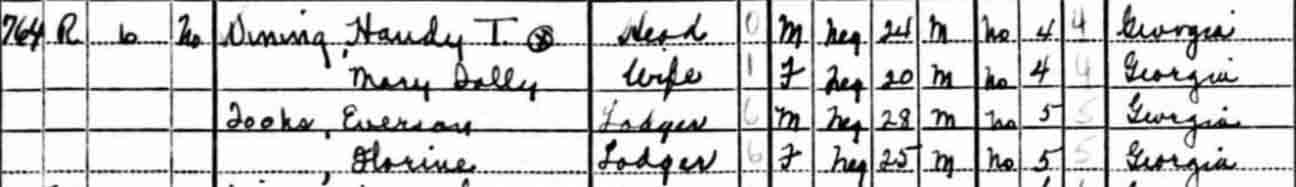 764 R 6 No Vining, Handy T. ⓧ Head 0 M Neg 24 M No 4 4 Georgia
, Mary Dolly Wife 1 F Neg 20 M No 4 4 Georgia
Tooks, Everson Lodger 6 M Neg 28 M No 5 5 Georgia
, Florine Lodger 6 F Neg 25 M No 5 5 Georgia